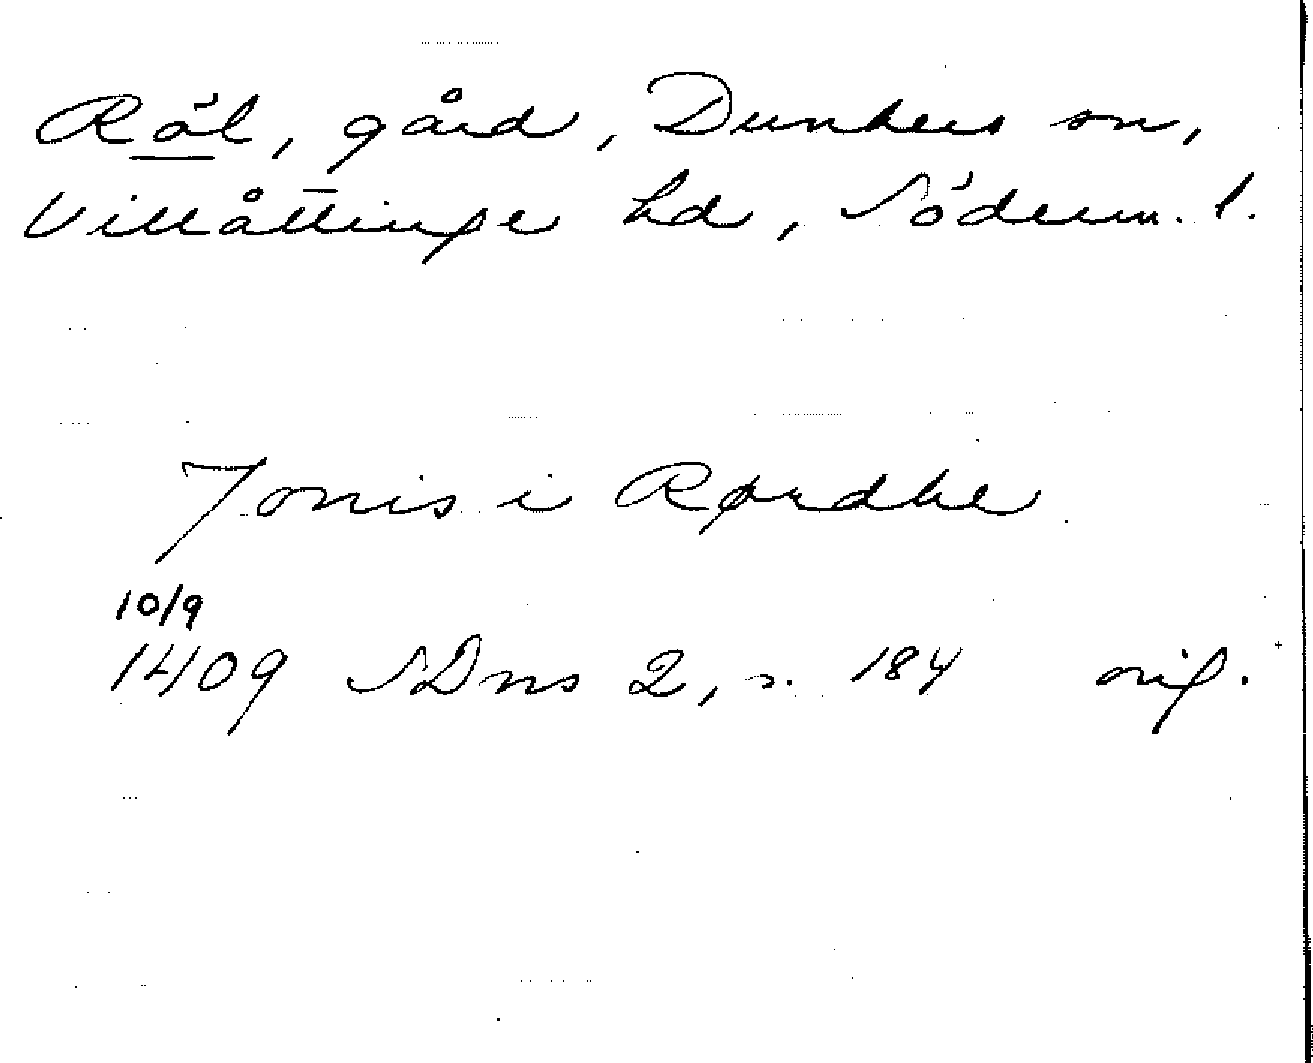 Röl, gård, Dunkers sn,
Villåttinge hd, Söderm. l.
Jonis i Rørdhle
10/9
1409 SDns 2, s. 184 orig.